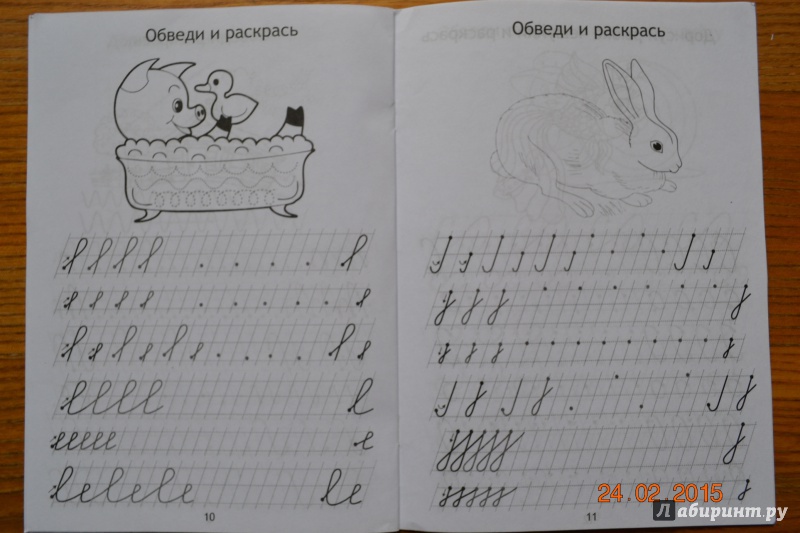 Обведи и раскрась
10
Обведи и раскрась
11
24.02.2015
Лабиринт.ру